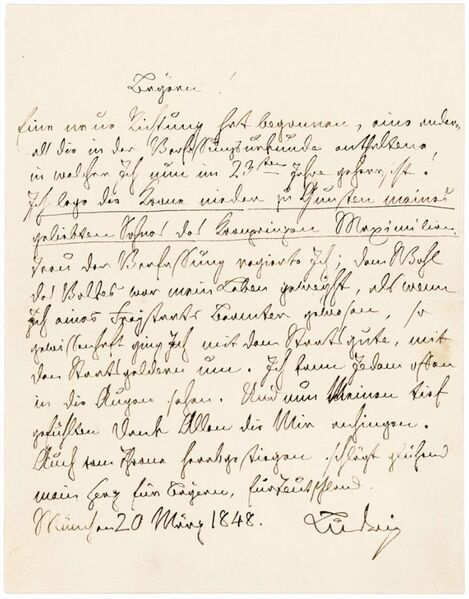 Bayern!
Eine neue Richtung hat begonnen, eine andere
als die in der Verfassungsurkunde enthaltene,
in welcher Ich nun im 23sten Jahre geherrscht.
Ich lege die Krone nieder zu Gunsten meines
geliebten Sohnes des Kronprinzen Maximilian.
Treu der Verfassung regierte Ich; dem Wohl
des Volkes war mein Leben geweiht, als wenn
Ich eines Freystaats Beamter gewesen, so
gewissenhaft ging Ich mit dem Staatsgute, mit
den Staatsgeldern um. Ich kann Jedem offen
in die Augen sehen. Und nun Meinen tief
gefühlten Dank Allen die Mir anhingen.
Auch vom Throne herabgestiegen schlägt glühend
mein Herz für Bayern, für Teutschland.
München 20 März 1848. Ludwig